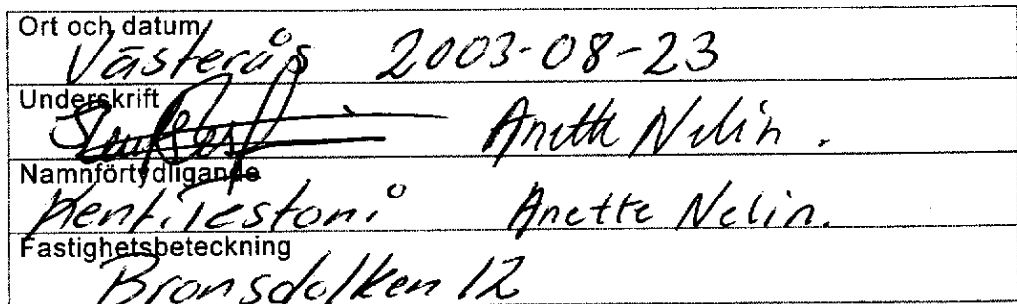 Ort och datum
Västerås 2003-08-23
Underskrift
Anette Nelin.
Namnförtydligande
Kent Testoni Anette Nelin.
Fastighetsbeteckning
Bronsdolken 12